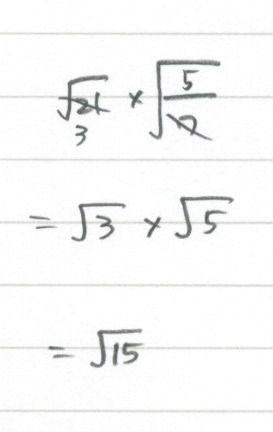 √21 × √(5/12)
3
= √3 × √5
= √15